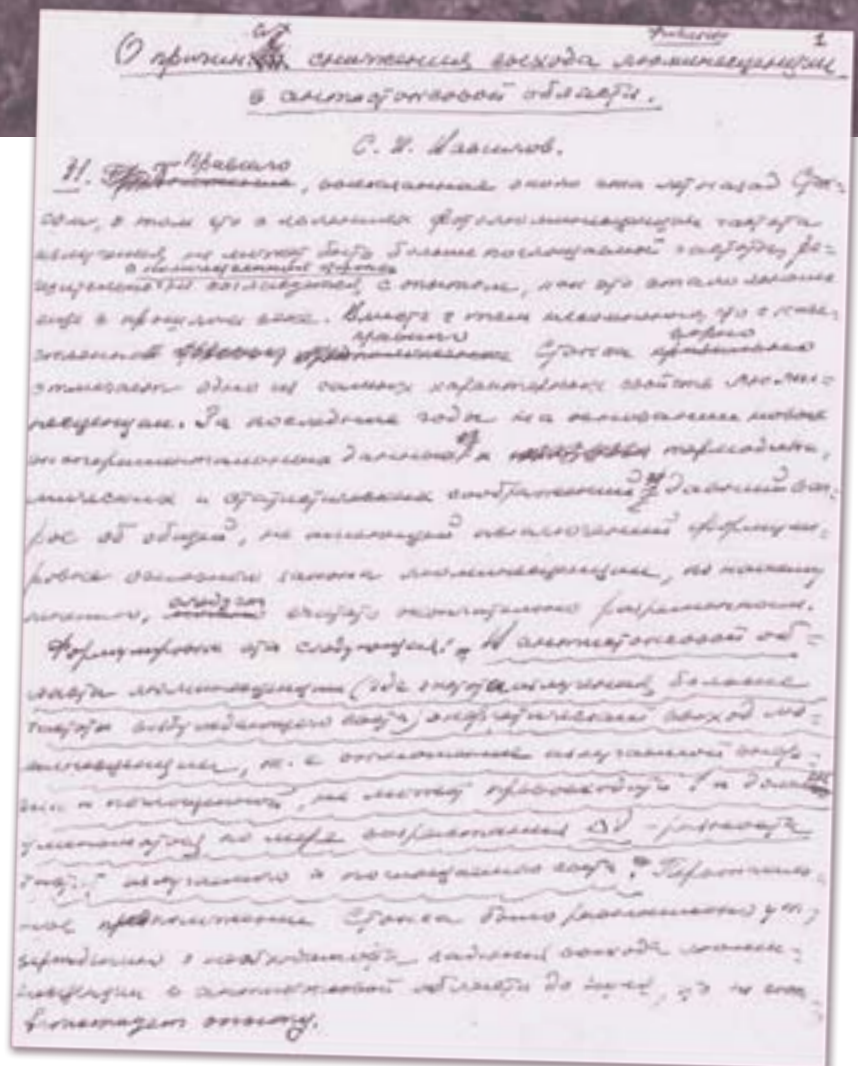 1
О причинах снижения выхода люминесценции
в антистоксовой области.
С. И. Вавилов.
§1. Правило, высказанное около ста лет назад Сток-
сом, о том что в явлениях фотолюминесценции частота
излучения не может быть больше поглощаемой частоты,
в количественной форме согласуется с опытом, как это стало
еще в прошлом веке. Вместе с тем несомненно, что
правило Стокса верно
отмечает одно из самых характерных свойств люми-
несценции. За последние годы на основании новых
экспериментальных данных и термодина-
мических и статистических соображений давний воп-
рос об общей, не имеющей исключений формули-
ровке основного закона люминесценции, по нашему
мнению, следует считать окончательно разрешенным.
Формулировка эта следующая: „В антистоксовой об-
ласти люминесценции (где частота излучения больше
частоты возбуждающего света) энергетический выход лю-
минесценции, т. е. отношение излучаемой энер-
гии к поглощенной, не может превосходить 1 и
уменьшаться по мере возрастания Δν - разности
частот излучаемого и поглощаемого света". Первоначаль-
ное предположение Стокса было равносильно ут-
верждению о необходимости падения выхода люми-
несценции в антистоксовой области до нуля, что не
опыту.